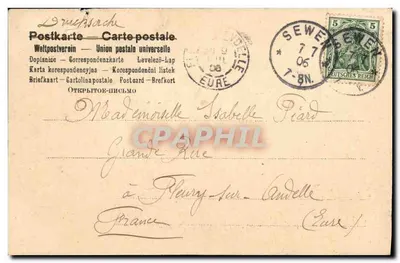 Drucksache
Postkarte — Carte postale
Weltpostverein — Union postale universelle
Dopisnice — Correspondenzkarte Levelezö-Lap
Karta korespondencyjna — Korespondenční lístek
Briefkaart — Cartolina postale Postcard — Brefkort
ОТКРЫТОЕ-ПИСЬМО
EURE
SEWEN
7 7
05
7-8N.
SEWEN
5 5
DEUTSCHES REICH
Mademoiselle Isabelle Piard
Grande Rue
à Fleury-sur-Andelle
France (Eure)
CPAPHIL